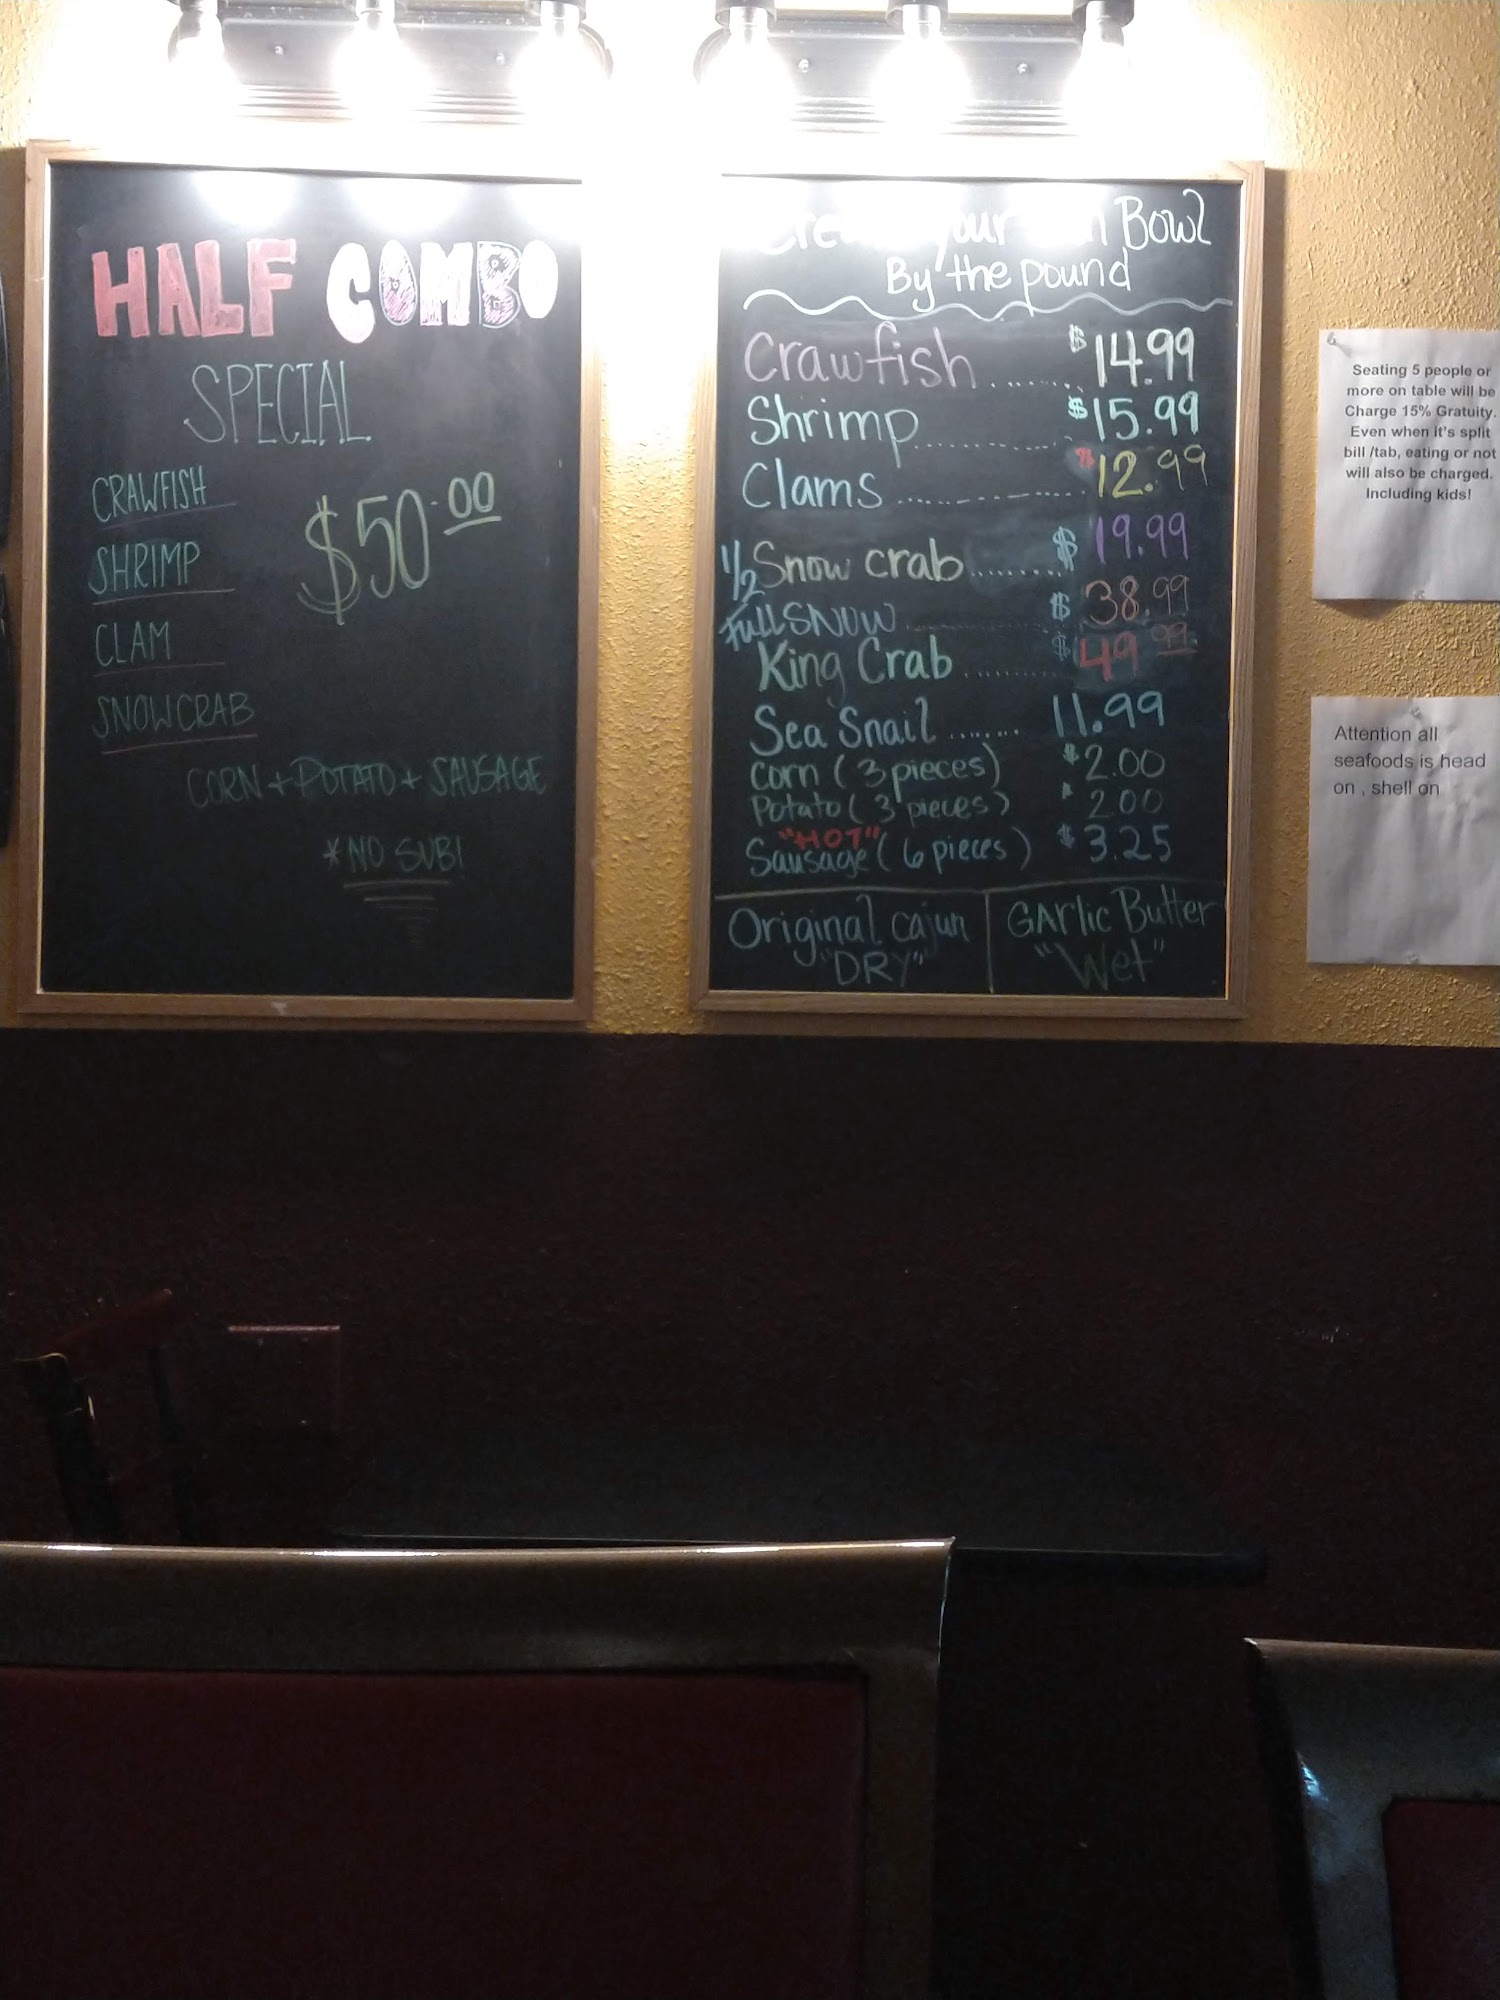 HALF COMBO
SPECIAL
CRAWFISH
SHRIMP
CLAM
SNOWCRAB
$50.00
CORN + POTATO + SAUSAGE
*NO SUB!
Create your Own Bowl
By the pound
Crawfish ........ $14.99
Shrimp ........ $15.99
Clams ........ $12.99
1/2 Snow crab ........ $19.99
Full SNOW ........ $38.99
King Crab ........ $49.99
Sea Snail ....... 11.99
Corn (3 pieces) $2.00
Potato (3 pieces) 2.00
"HOT"
Sausage (6 pieces) $3.25
Original cajun
"DRY"
GARlic Butter
"Wet"
Seating 5 people or
more on table will be
Charge 15% Gratuity.
Even when it's split
bill /tab, eating or not
will also be charged.
Including kids!
Attention all
seafoods is head
on , shell on